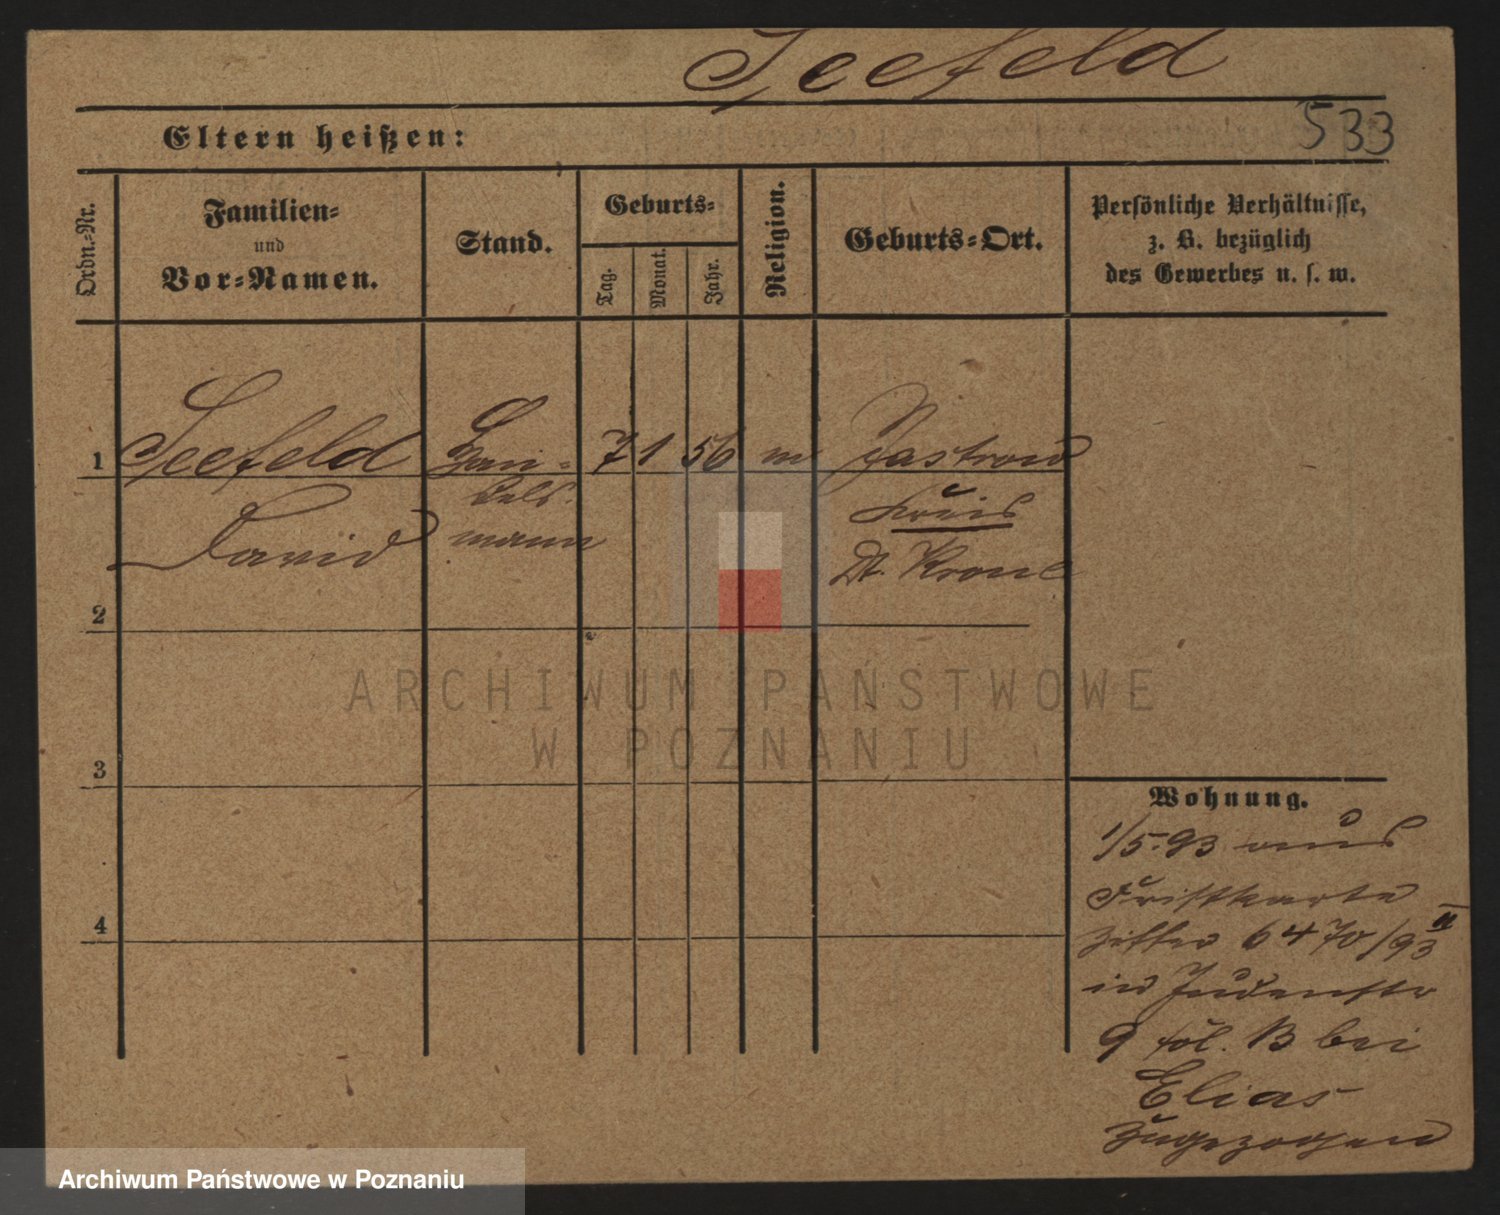 Seefeld
533
Eltern heißen:
Ordn.-Nr.
Familien-
und
Vor-Namen.
Stand.
Geburts-
Tag.
Monat.
Jahr.
Religion.
Geburts-Ort.
Persönliche Verhältnisse,
z. B. bezüglich
des Gewerbes u. s. w.
1
Seefeld Han- 7 1 56 m Jastrow
dels-
Kreis
David mann
Dt. Krone
2
3
4
ARCHIWUM PAŃSTWOWE
W POZNANIU
Wohnung.
1/5.93 aus
Fristkarte
6470/93 II
in Judenstr
9 bei
Elias
zugezogen
Archiwum Państwowe w Poznaniu